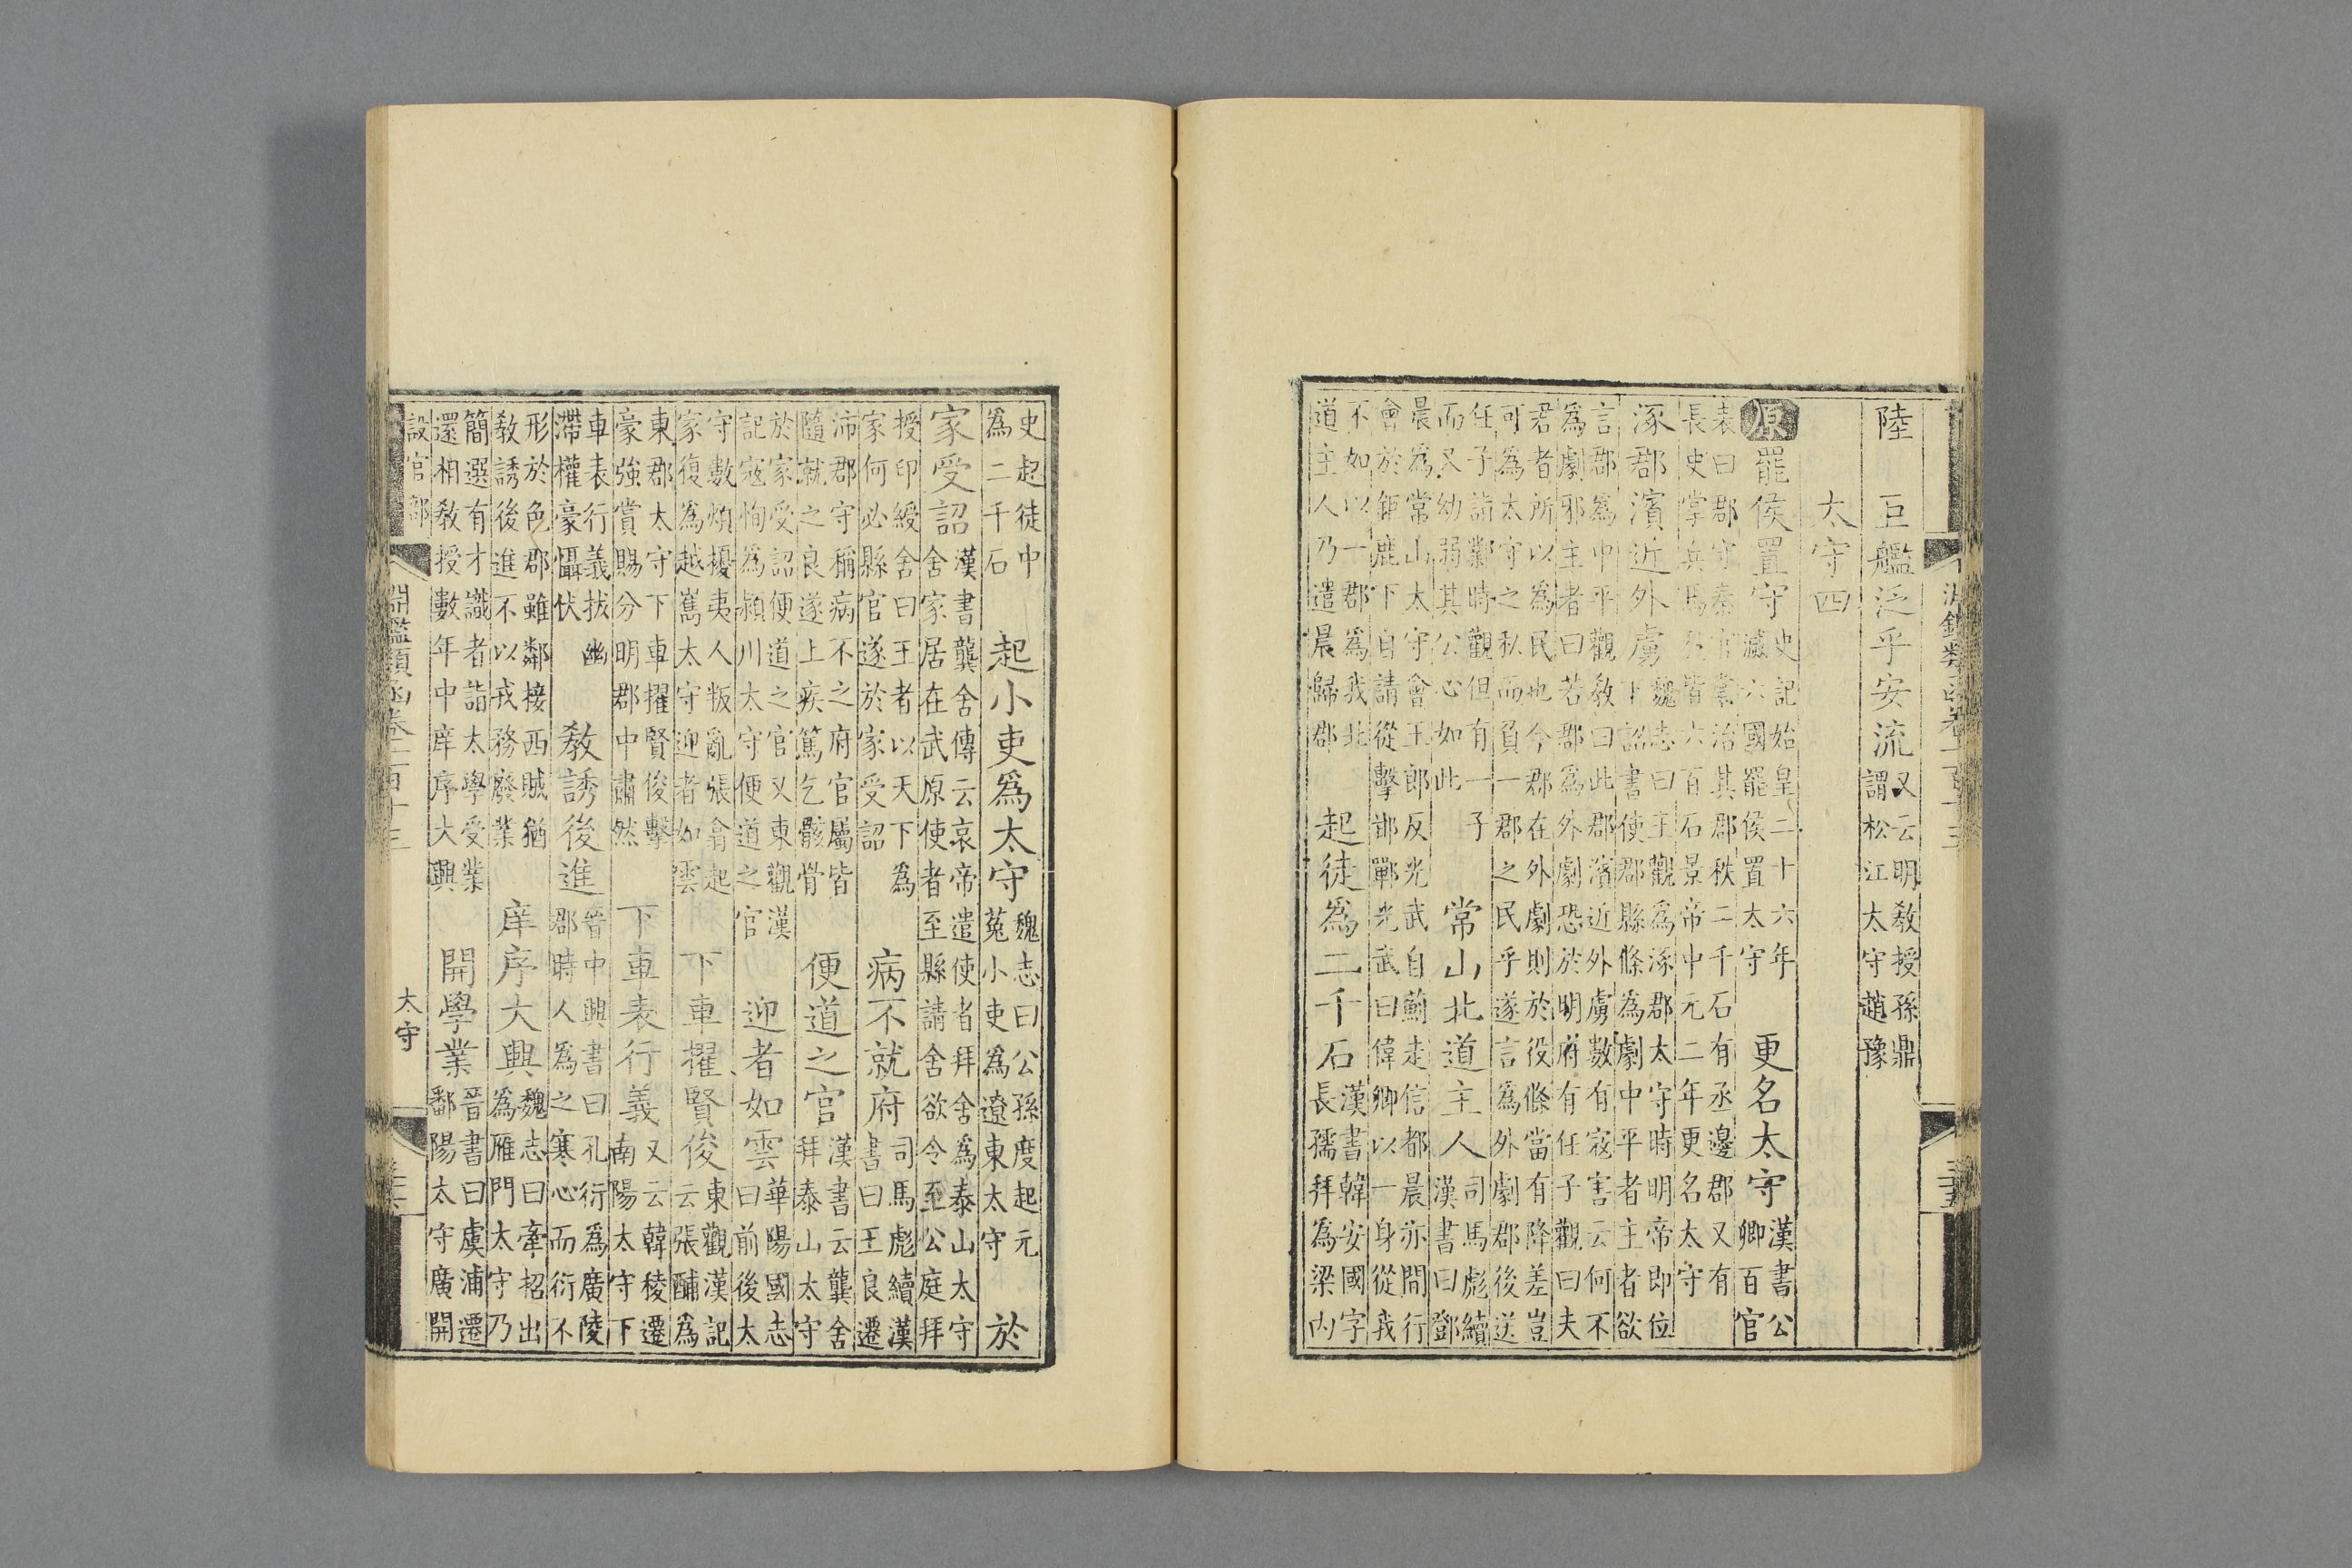 淵鑑類函卷一百十三
陸 巨艦泛乎安流
又云明教授孫鼎
謂松江太守趙豫
太守四
原 罷侯置守
史記始皇二十六年
滅六國罷侯置太守
更名太守
漢書公
卿百官
表曰郡守秦官掌治其郡秩二千石有丞邊郡又有
長史掌兵馬秩皆六百石景帝中元二年更名太守
涿郡濱近外虜
魏志曰王觀爲涿郡太守時明帝即位
下詔書使郡縣條爲劇中平者主者欲
言郡爲中平觀教曰此郡濱近外虜數有寇害云何不
爲劇邪主者曰若郡爲外劇恐於明府有任子觀曰夫
君者所以爲民也今郡在外劇則於役條當有降差豈
可爲太守之私而負一郡之民乎遂言爲外劇郡後送
任子詣鄴時觀但有一子
而又幼弱其公心如此
常山北道主人
司馬彪續
漢書曰鄧
晨爲常山太守會王郎反光武自薊走信都晨亦間行
會於鉅鹿下自請從擊邯鄲光武曰偉卿以一身從我
不如以一郡爲我北
道主人乃遣晨歸郡
起徒爲二千石
漢書韓安國字
長孺拜爲梁內
史起徒中
爲二千石
起小吏爲太守
魏志曰公孫度起元
菟小吏爲遼東太守
於
家受詔
漢書龔舍傳云哀帝遣使者拜舍爲泰山太守
舍家居在武原使者至縣請舍欲令至公庭拜
授印綬舍曰王者以天下爲
家何必縣官遂於家受詔
病不就府
司馬彪續漢
書曰王良遷
沛郡守稱病不之府官屬皆
隨就之良遂上疾篤乞骸骨
便道之官
漢書云龔舍
拜泰山太守
於家受詔便道之官又東觀漢
記寇恂爲潁川太守便道之官
迎者如雲
華陽國志
曰前後太
守數煩擾夷人叛亂張翕起
家復爲越嶲太守迎者如雲
下車擢賢俊
東觀漢記
云張酺爲
東郡太守下車擢賢俊擊
豪強賞賜分明郡中肅然
下車表行義
又云韓稜遷
南陽太守下
車表行義拔幽
滯權豪懾伏
教誘後進
晉中興書曰孔衍爲廣陵
郡時人爲之寒心而衍不
形於色郡雖鄰接西賊猶
教誘後進不以戎務廢業
庠序大興
魏志曰牽招出
爲雁門太守乃
簡選有才識者詣太學受業
還相教授數年中庠序大興
開學業
晉書曰虞浦遷
鄱陽太守廣開
設官部 淵鑑類函卷二百十三 太守